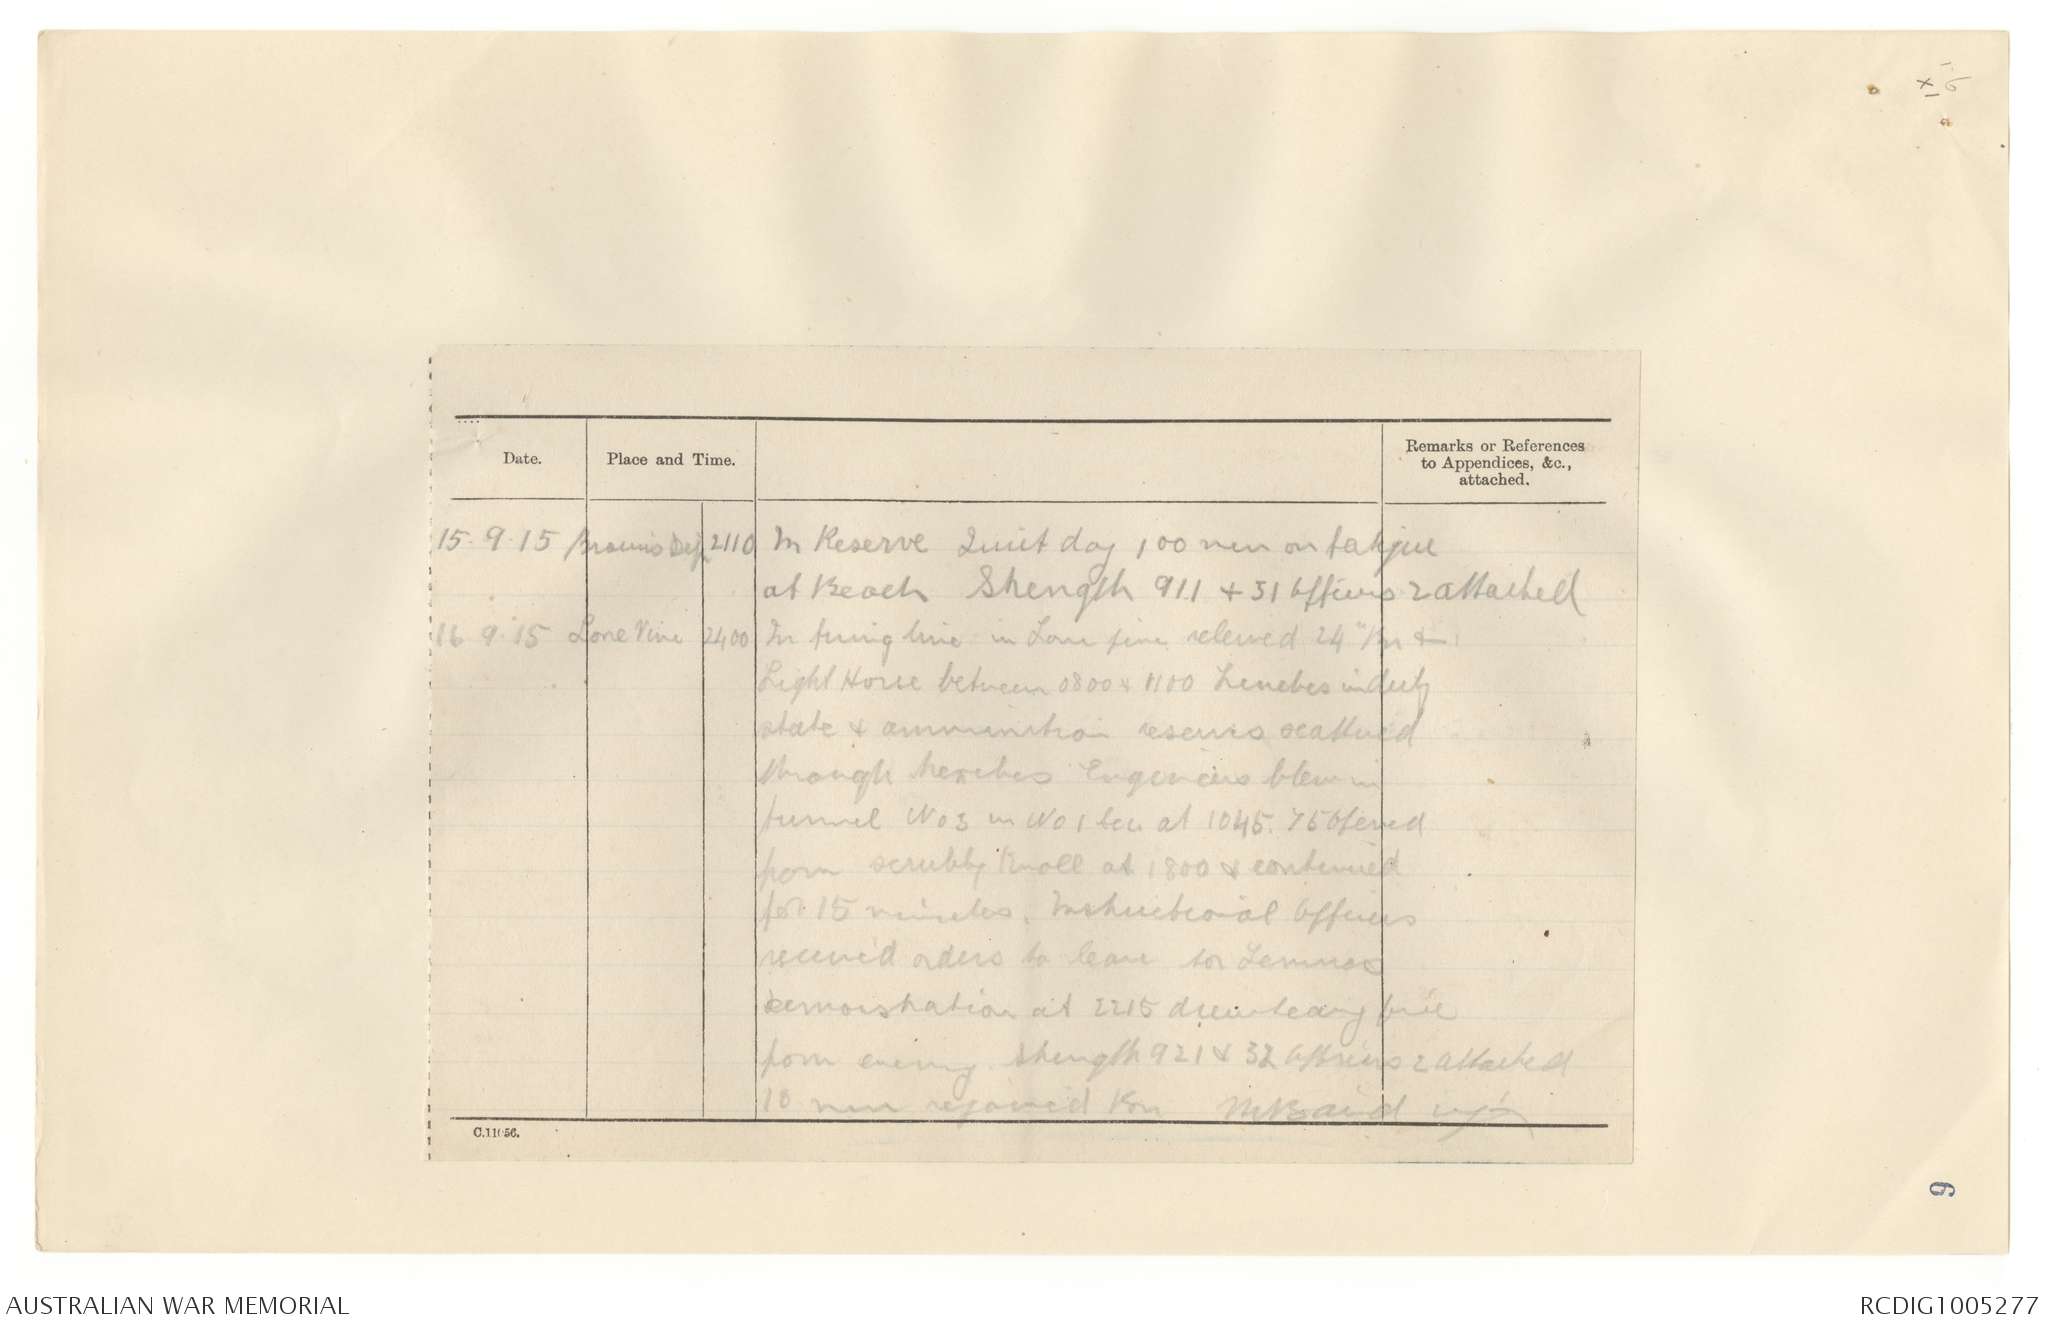 Date. Place and Time. Remarks or References
to Appendices, &c.,
attached.
15.9.15 Browns Dip 2110 In Reserve Quiet day 100 men on fatigue
at Beach Strength 911 + 31 Officers 2 attached
16 9.15 Lone Pine 2400 In firing line in Lone pine relieved 24" Bn +
Light Horse between 0800 + 1100 Trenches in dirty
state & ammunition reserves scattered
through trenches Engineers blew in
tunnel No 3 in No 1 Sec at 1045. 75 Opened
from scrubby Knoll at 1800 & continued
for 15 minutes. Instructional Officers
received orders to leave for Lemnos
Demonstration at 2215 drew heavy fire
from enemy. Strength 921 & 32 Officers 2 attached
10 men rejoined Bn
C.11056.
9
AUSTRALIAN WAR MEMORIAL RCDIG1005277